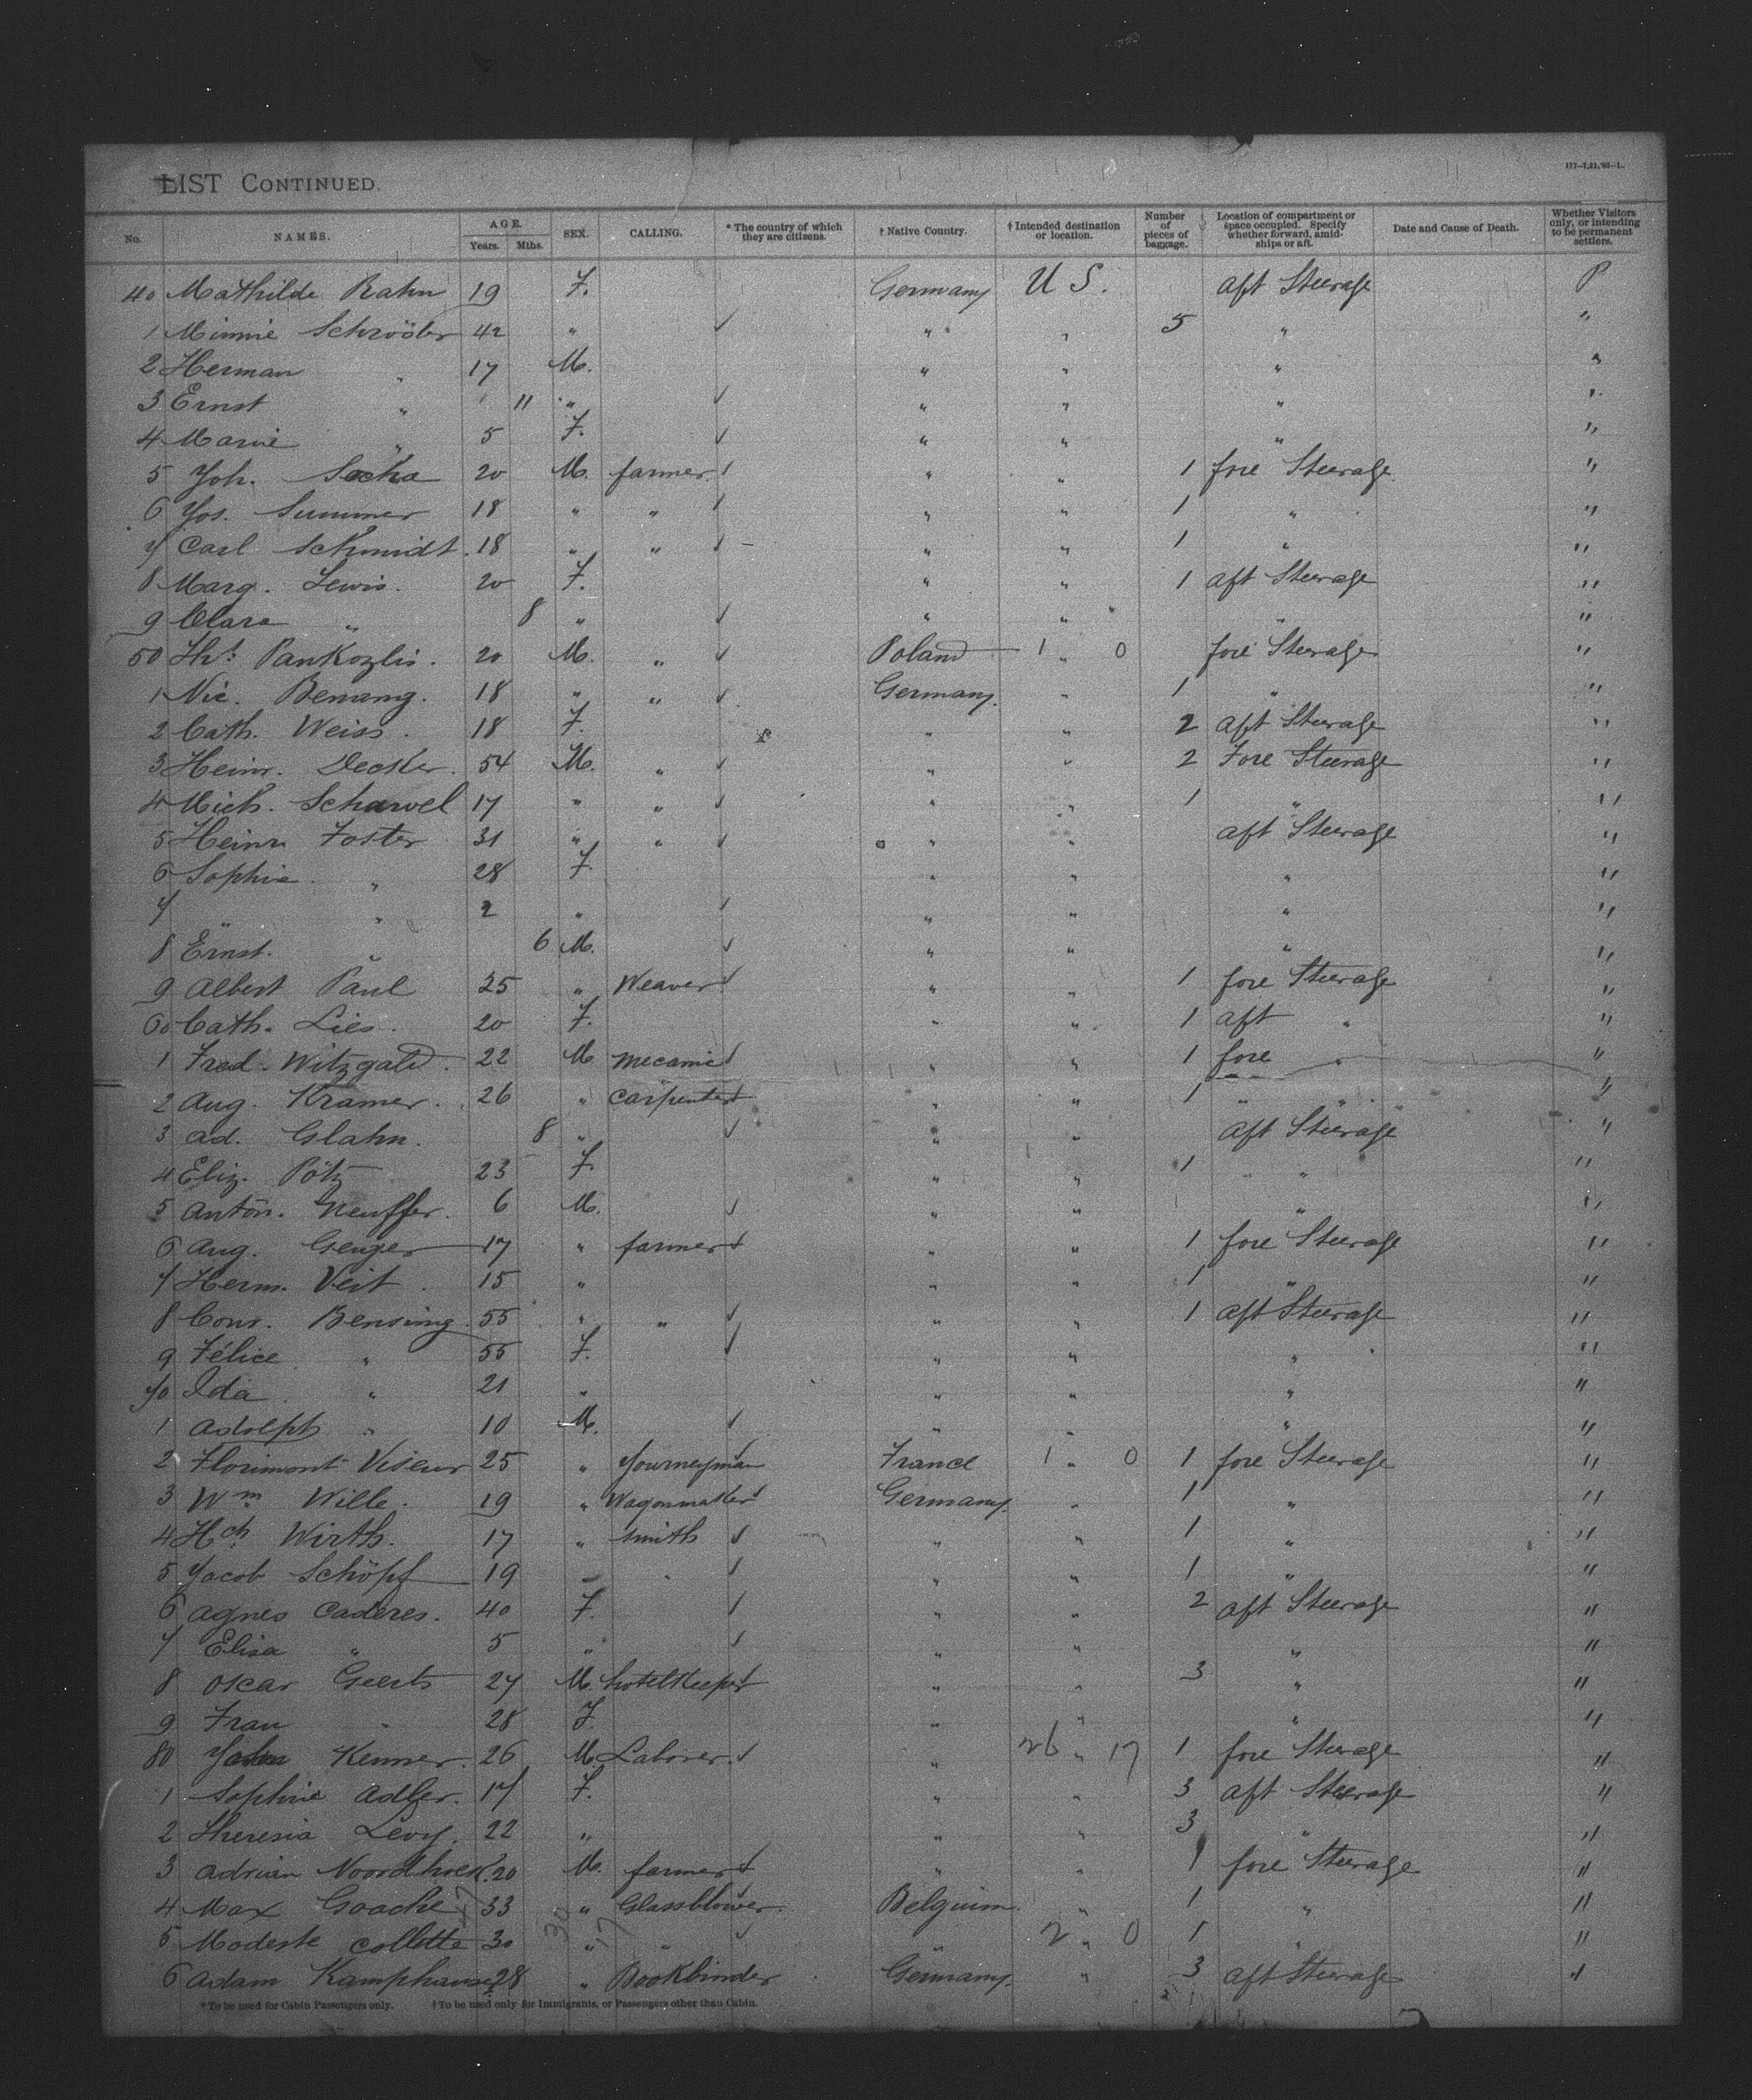 LIST CONTINUED.
177-7,21,'85-L.
No. NAMES. AGE. Years. Mths. SEX. CALLING. * The country of which they are citizens. † Native Country. † Intended destination or location. Number of pieces of baggage. Location of compartment or space occupied. Specify whether forward, amidships or aft. Date and Cause of Death. Whether Visitors only, or intending to be permanent settlers.
40 Mathilde Rahn 19 F. Germany U S. aft Steerage P
1 Minnie Schröder 42 " ✓ " " 5 " "
2 Herman " 17 M. " " " "
3 Ernst " 11 " ✓ " " " "
4 Marie " 5 F. ✓ " " " "
5 Joh. Socha 20 M. farmer ✓ " " 1 fore Steerage "
6 Jos. Summer 18 " " ✓ " " 1 " "
7 Carl Schmidt 18 " " ✓ " " 1 " "
8 Marg. Lewis. 20 F. " " 1 aft Steerage "
9 Clara " 8 " ✓ " " " "
50 Ths. Pankozlis. 20 M. " ✓ Poland 1 " 0 fore Steerage "
1 Nic. Benang. 18 " " ✓ Germany. " 1 " "
2 Cath. Weiss. 18 F. " " 2 aft Steerage "
3 Heinr. Decker. 54 M. " ✓ " " 2 Fore Steerage "
4 Mich. Scharvel 17 " " ✓ " " 1 " "
5 Heinr Foster 31 " " ✓ " " aft Steerage "
6 Sophie " 28 F. " " " "
7 " " 2 " ✓ " " " "
8 Ernst. " 6 M. ✓ " " " "
9 Albert Paul 25 " Weaver ✓ " " 1 fore Steerage "
60 Cath. Lies. 20 F. " " 1 aft " "
1 Fred. Witzgald. 22 M. mecanic ✓ " " 1 fore " "
2 Aug. Kramer. 26 " Carpenter ✓ " " 1 " " "
3 Ad. Glahn. 8 " ✓ " " aft Steerage "
4 Eliz. Pötz 23 F. " " 1 " "
5 Anton. Neuffer. 6 M. ✓ " " " "
6 Aug. Geuger 17 " farmer ✓ " " 1 fore Steerage "
7 Herm. Veit 15 " " " 1 " "
8 Conr. Bensing. 55 " " ✓ " " 1 aft Steerage "
9 Félice " 55 F. ✓ " " " "
70 Ida " 21 " " " " "
1 Adolph " 10 M. ✓ " " " "
2 Florimont Viseur 25 " Journeyman ✓ France 1 " 0 1 fore Steerage "
3 Wm Wille. 19 " Wagonmaker ✓ Germany. " 1 " "
4 Hch. Wirth. 17 " smith ✓ " " 1 " "
5 Jacob Schöpf 19 " " ✓ " " 1 " "
6 Agnes Caderes. 40 F. ✓ " " 2 aft Steerage "
7 Elisa " 5 " ✓ " " " "
8 Oskar Geerts 27 M. hotelkeeper ✓ " " 3 " "
9 Frau " 28 F. " " " "
80 John Kenner. 26 M. Laborer ✓ " 26 " 17 1 fore Steerage "
1 Sophie Adler. 17 F. " " 3 aft Steerage "
2 Theresia Levy. 22 " " " 3 " "
3 Adrian Noordhoek. 20 M. farmer ✓ " " 1 fore Steerage "
4 Max Goache 33 " Glassblower ✓ Belgium. " 1 " "
5 Modeste Collette 30 " " ✓ " 2 " 0 1 " "
6 Adam Kamphause 28 " Bookbinder Germany. " 3 aft Steerage "
30 17
* To be used for Cabin Passengers only. † To be used only for Immigrants, or Passengers other than Cabin.